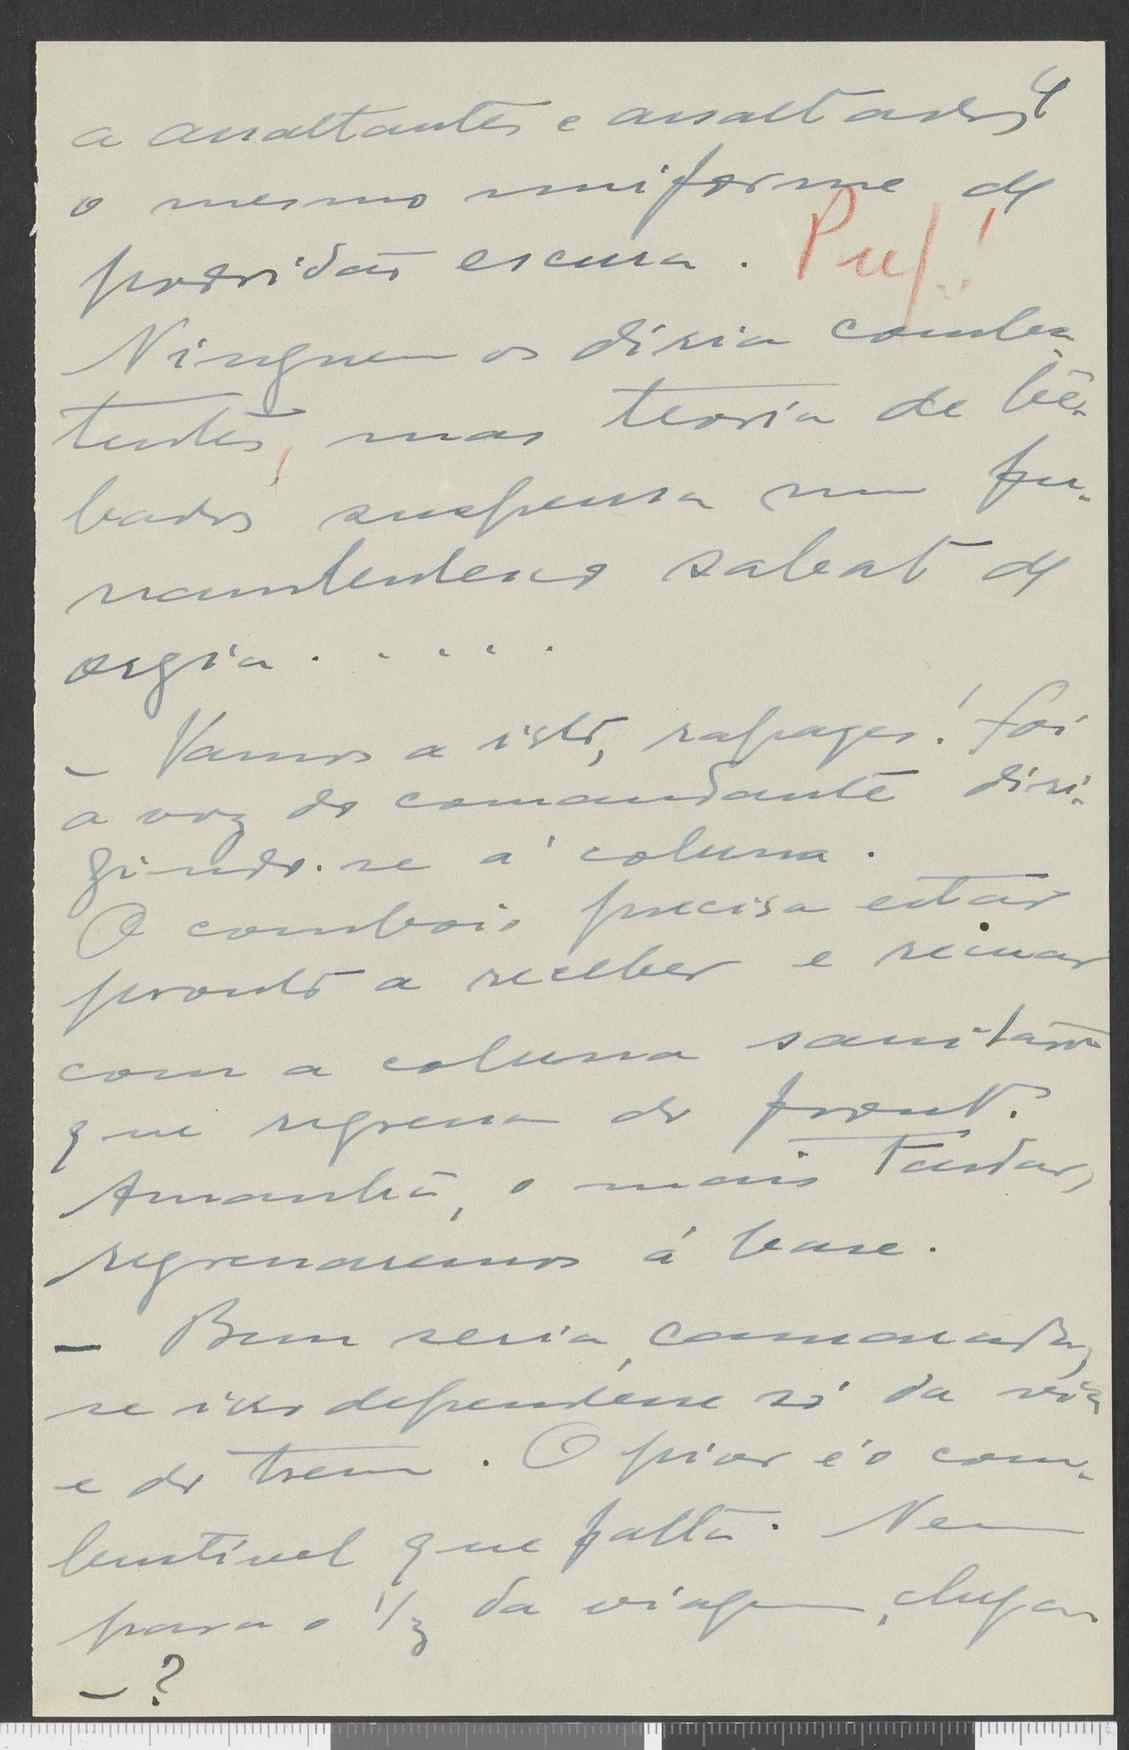 4
a assaltantes e assaltados
o mesmo uniforme de
podridão escura. Puf!
Ninguem os diria comba-
tentes, mas teoria de bê-
bados suspensa num fu-
nambulesco sabat de
orgia . . . . .
– Vamos a isto, rapazes! foi
a voz do comandante diri-
gindo-se á coluna.
O comboio precisa estar
pronto a receber e
com a coluna sanitária
que regressa do front.
Amanhã, o mais tardar,
regressaremos á base.
– Bom seria, camarada,
se isso dependesse só da via
e do trem. O pior é o com-
bustivel que falta. Nem
para o 1/3 da viagem, chega
– ?